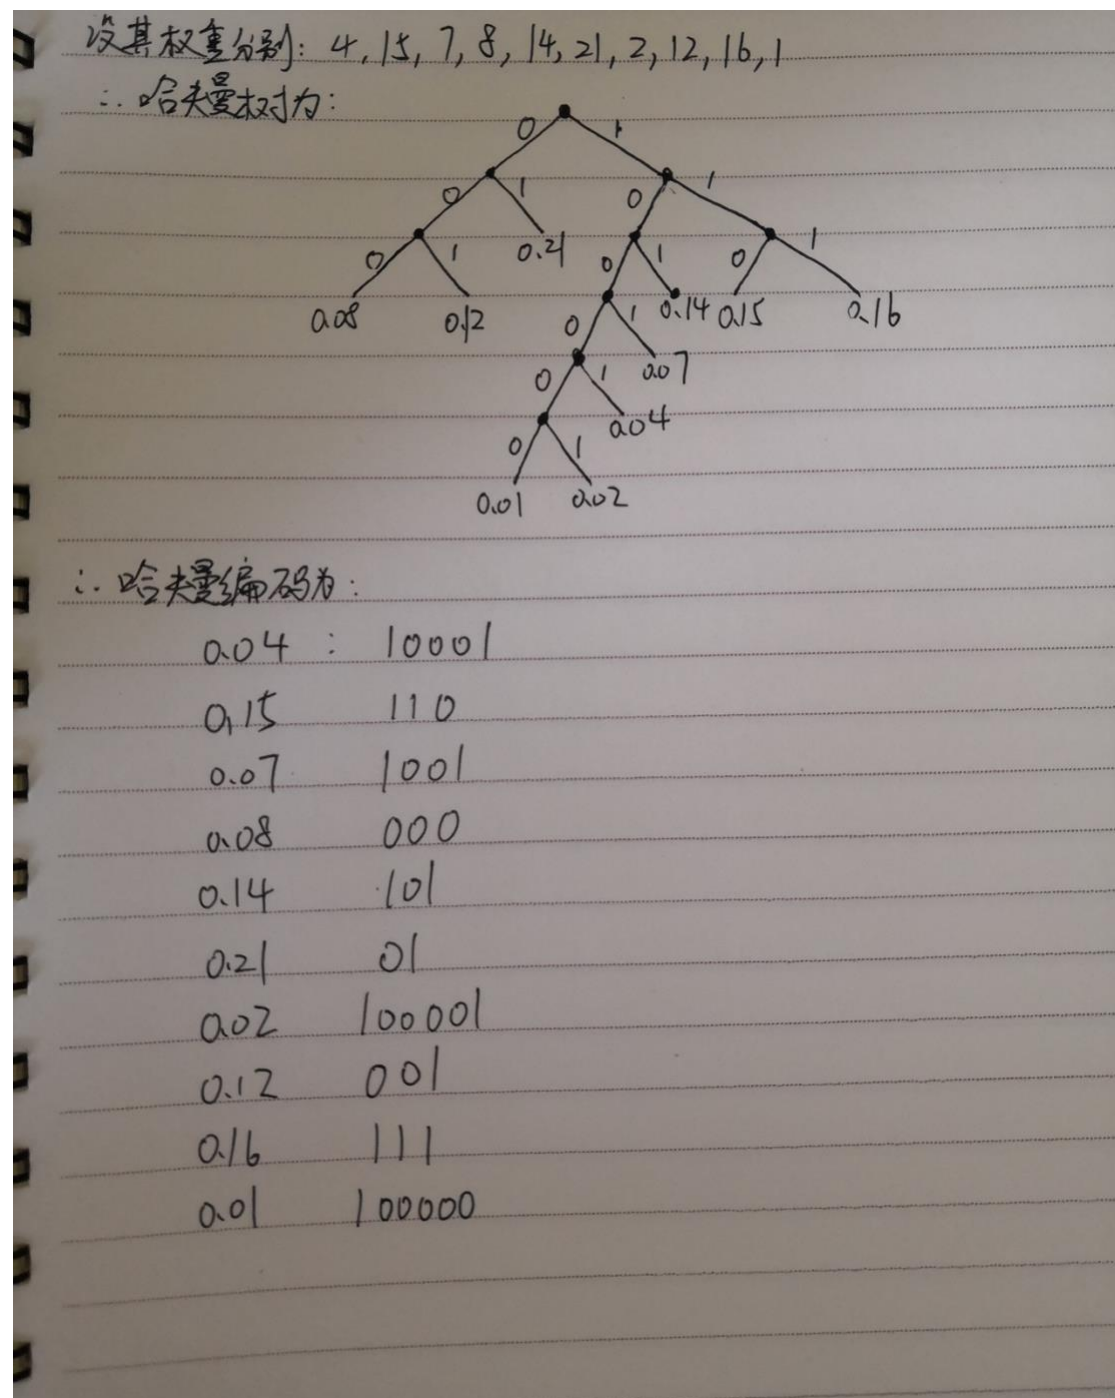 设其权重分别: 4, 15, 7, 8, 14, 21, 2, 12, 16, 1
∴ 哈夫曼树为:
0 1
0 1 0 1
0 1 0.21 0 1 0 1
0.08 0.12 0 1 0.14 0.15 0.16
0 1 0.07
0 1 0.04
0.01 0.02
∴ 哈夫曼编码为:
0.04 : 10001
0.15 110
0.07 1001
0.08 000
0.14 101
0.21 01
0.02 100001
0.12 001
0.16 111
0.01 100000